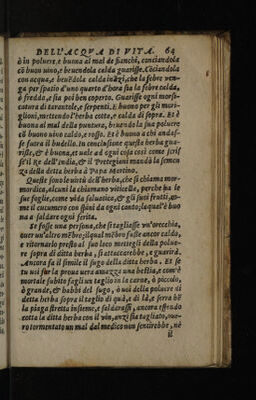 DELL'ACQVA DI VITA. 64
ò in poluere, è buona al mal de fianchi, conciandola
cō buon uino, e beuendola calda guarisse. Cōciandola
con acqua, e beuēdola calda ināzi, che la febre ven-
ga per spatio d'uno quarto d'hora sia la febre calda,
ò fredda, e sia poi ben coperto. Guarisse ogni morsi-
catura di tarantole, e serpenti. E buono per gli mari-
glioni, mettendo l'herba cotta, e calda di sopra. Et è
buona al mal della puntura, beuendo la sua poluere
cō buono uino caldo, e rosso. Et è buono a chi andas-
se fuora il budello. In conclusione questa herba gua-
risse, & è buona, et uale ad ogni cosa così come scris
se'l Re dell'India, & il Pretegianni mandò la semen
za della detta herba à Papa Martino.
Queste sono le virtù dell'herba, che si chiama mo-
mordica, alcuni la chiamano viticella, perche fa le
sue foglie, come vida saluatica, & gli suoi frutti, co-
me il cucumero con spini da ogni canto, laqual'è buo
na a saldare ogni ferita.
Se fosse una persona, che si tagliasse un'orecchio,
ouer un'altro mēbro; ilqual mēbro fusse ancor caldo,
e ritornarlo presto al suo loco mettegli della polue-
re sopra di ditta herba, si attaccarebbe, e guarirà.
Ancora fa il simile il sugo della ditta herba. Et se
tu uoi far la proua uera amazza una bestia, e com'è
mortale subito fagli un taglio in la carne, ò piccolo,
ò grande, & habbi del sugo, ò uoi della poluere di
detta herba sopra il taglio di quà, e di là, e serra bē
la piaga stretta insieme, e saldarassi, ancora essendo
cotta la ditta herba con il vin, anzi sia tagliato, oue-
ro tormentato un mal dal medico non sentirebbe, nè
il